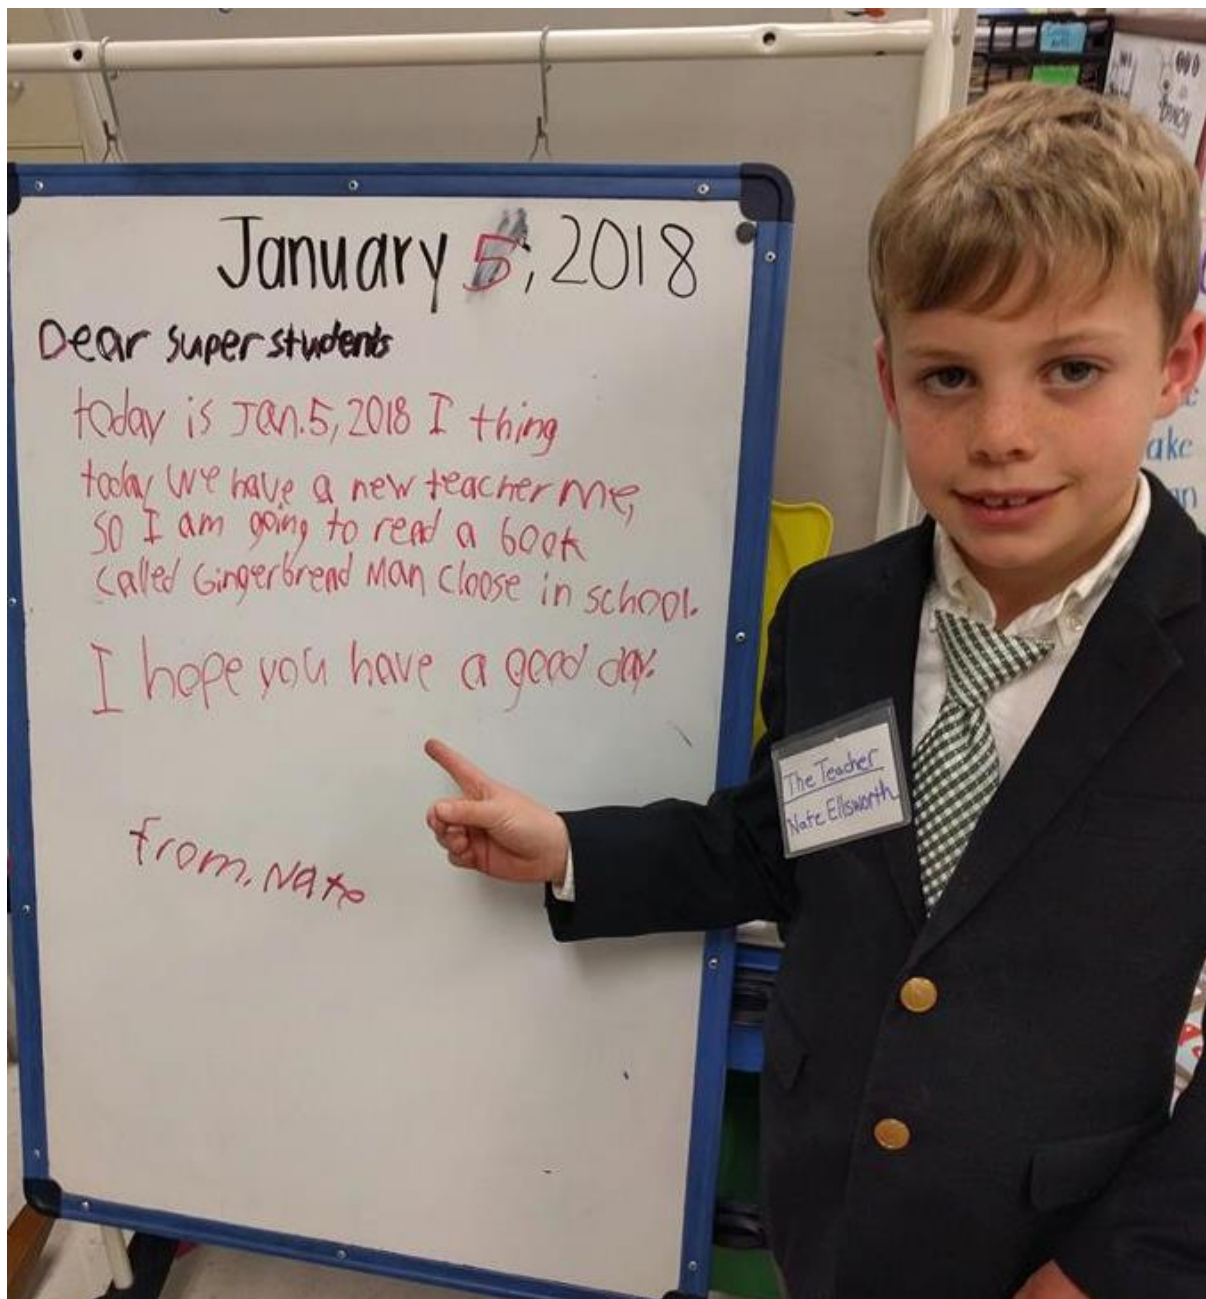 January 5, 2018
Dear super students
today is Jan. 5, 2018 I thing
today we have a new teacher me,
so I am going to read a book
called Gingerbread Man cloose in school.
I hope you have a good day.
from, Nate
The Teacher
Nate Ellsworth
ake